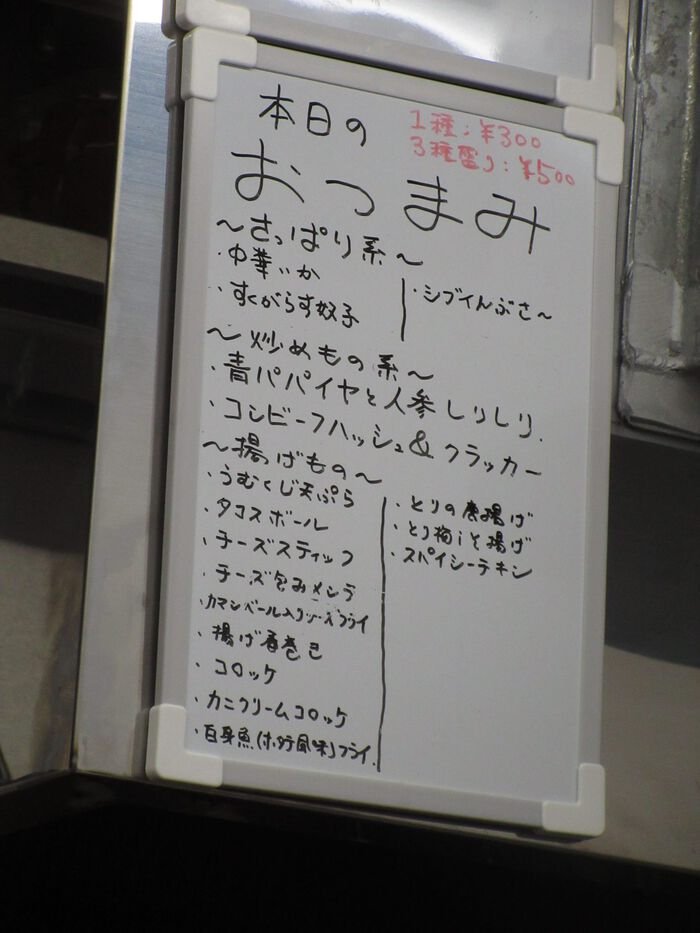 本日の
1種:¥300
3種盛り:¥500
おつまみ
～さっぱり系～
・中華いか
・すくがらす奴子
・シブインぶさ～
～炒めもの系～
・青パパイヤと人参しりしり.
・コンビーフハッシュ&クラッカー
～揚げもの～
・うむくじ天ぷら
・タコスボール
・チーズスティック
・チーズ包みメンチ
・カマンベール入りチーズフライ
・揚げ春巻き
・コロッケ
・カニクリームコロッケ
・白身魚(ホタテ風味)フライ.
・とりの唐揚げ
・とり梅しそ揚げ
・スパイシーチキン